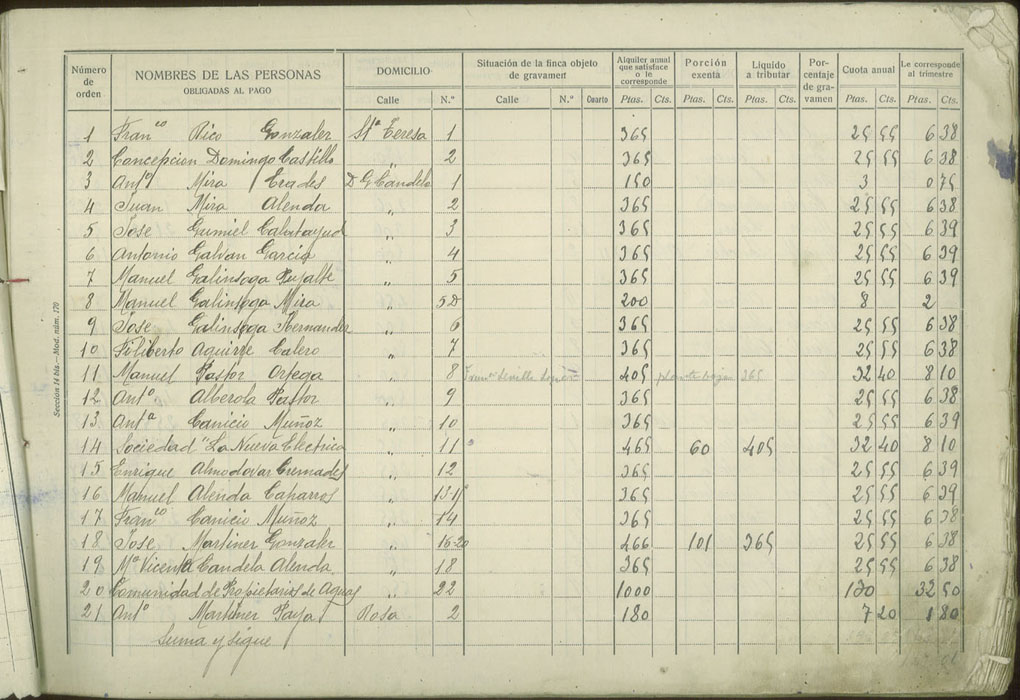 Número de orden | NOMBRES DE LAS PERSONAS OBLIGADAS AL PAGO | DOMICILIO | Situación de la finca objeto de gravamen | Alquiler anual que satisface o le corresponde | Porción exenta | Líquido a tributar | Por-centaje de gra-vamen | Cuota anual | Le corresponde al trimestre
Calle | N.º | Calle | N.º | Cuarto | Ptas. | Cts. | Ptas. | Cts. | Ptas. | Cts. | Ptas. | Cts. | Ptas. | Cts.
1 Franco Rico Gonzalez Sta Teresa 1 365 25 55 6 38
2 Concepcion Domingo Castillo " 2 365 25 55 6 38
3 Anto Mira Erades D G Candela 1 150 3 0 75
4 Juan Mira Alenda " 2 365 25 55 6 38
5 Jose Gumiel Calatayud " 3 365 25 55 6 39
6 Antonio Galvan Garcia " 4 365 25 55 6 39
7 Manuel Galinsoga Pujalte " 5 365 25 55 6 39
8 Manuel Galinsoga Mira " 5D 200 8 2
9 Jose Galinsoga Hernandez " 6 365 25 55 6 38
10 Filiberto Aguirre Calero " 7 365 25 55 6 38
11 Manuel Pastor Ortega " 8 405 planta baja 365 32 40 8 10
12 Anto Alberola Pastor " 9 365 25 55 6 38
13 Anta Canicio Muñoz " 10 365 25 55 6 39
14 Sociedad "La Nueva Electrica " 11 465 60 405 32 40 8 10
15 Enrique Almodovar Cremades " 12 365 25 55 6 39
16 Manuel Alenda Caparros " 365 25 55 6 39
17 Franco Canicio Muñoz " 14 365 25 55 6 38
18 Jose Martinez Gonzalez " 16-20 466 101 365 25 55 6 38
19 Ma Vicenta Candela Alenda " 18 365 25 55 6 38
20 Comunidad de Propietarios de Aguas " 22 1000 130 32 50
21 Anto Martinez Paya Rosa 2 180 7 20 1 80
Suma y sigue
Sección 14 bis.—Mod. núm. 170